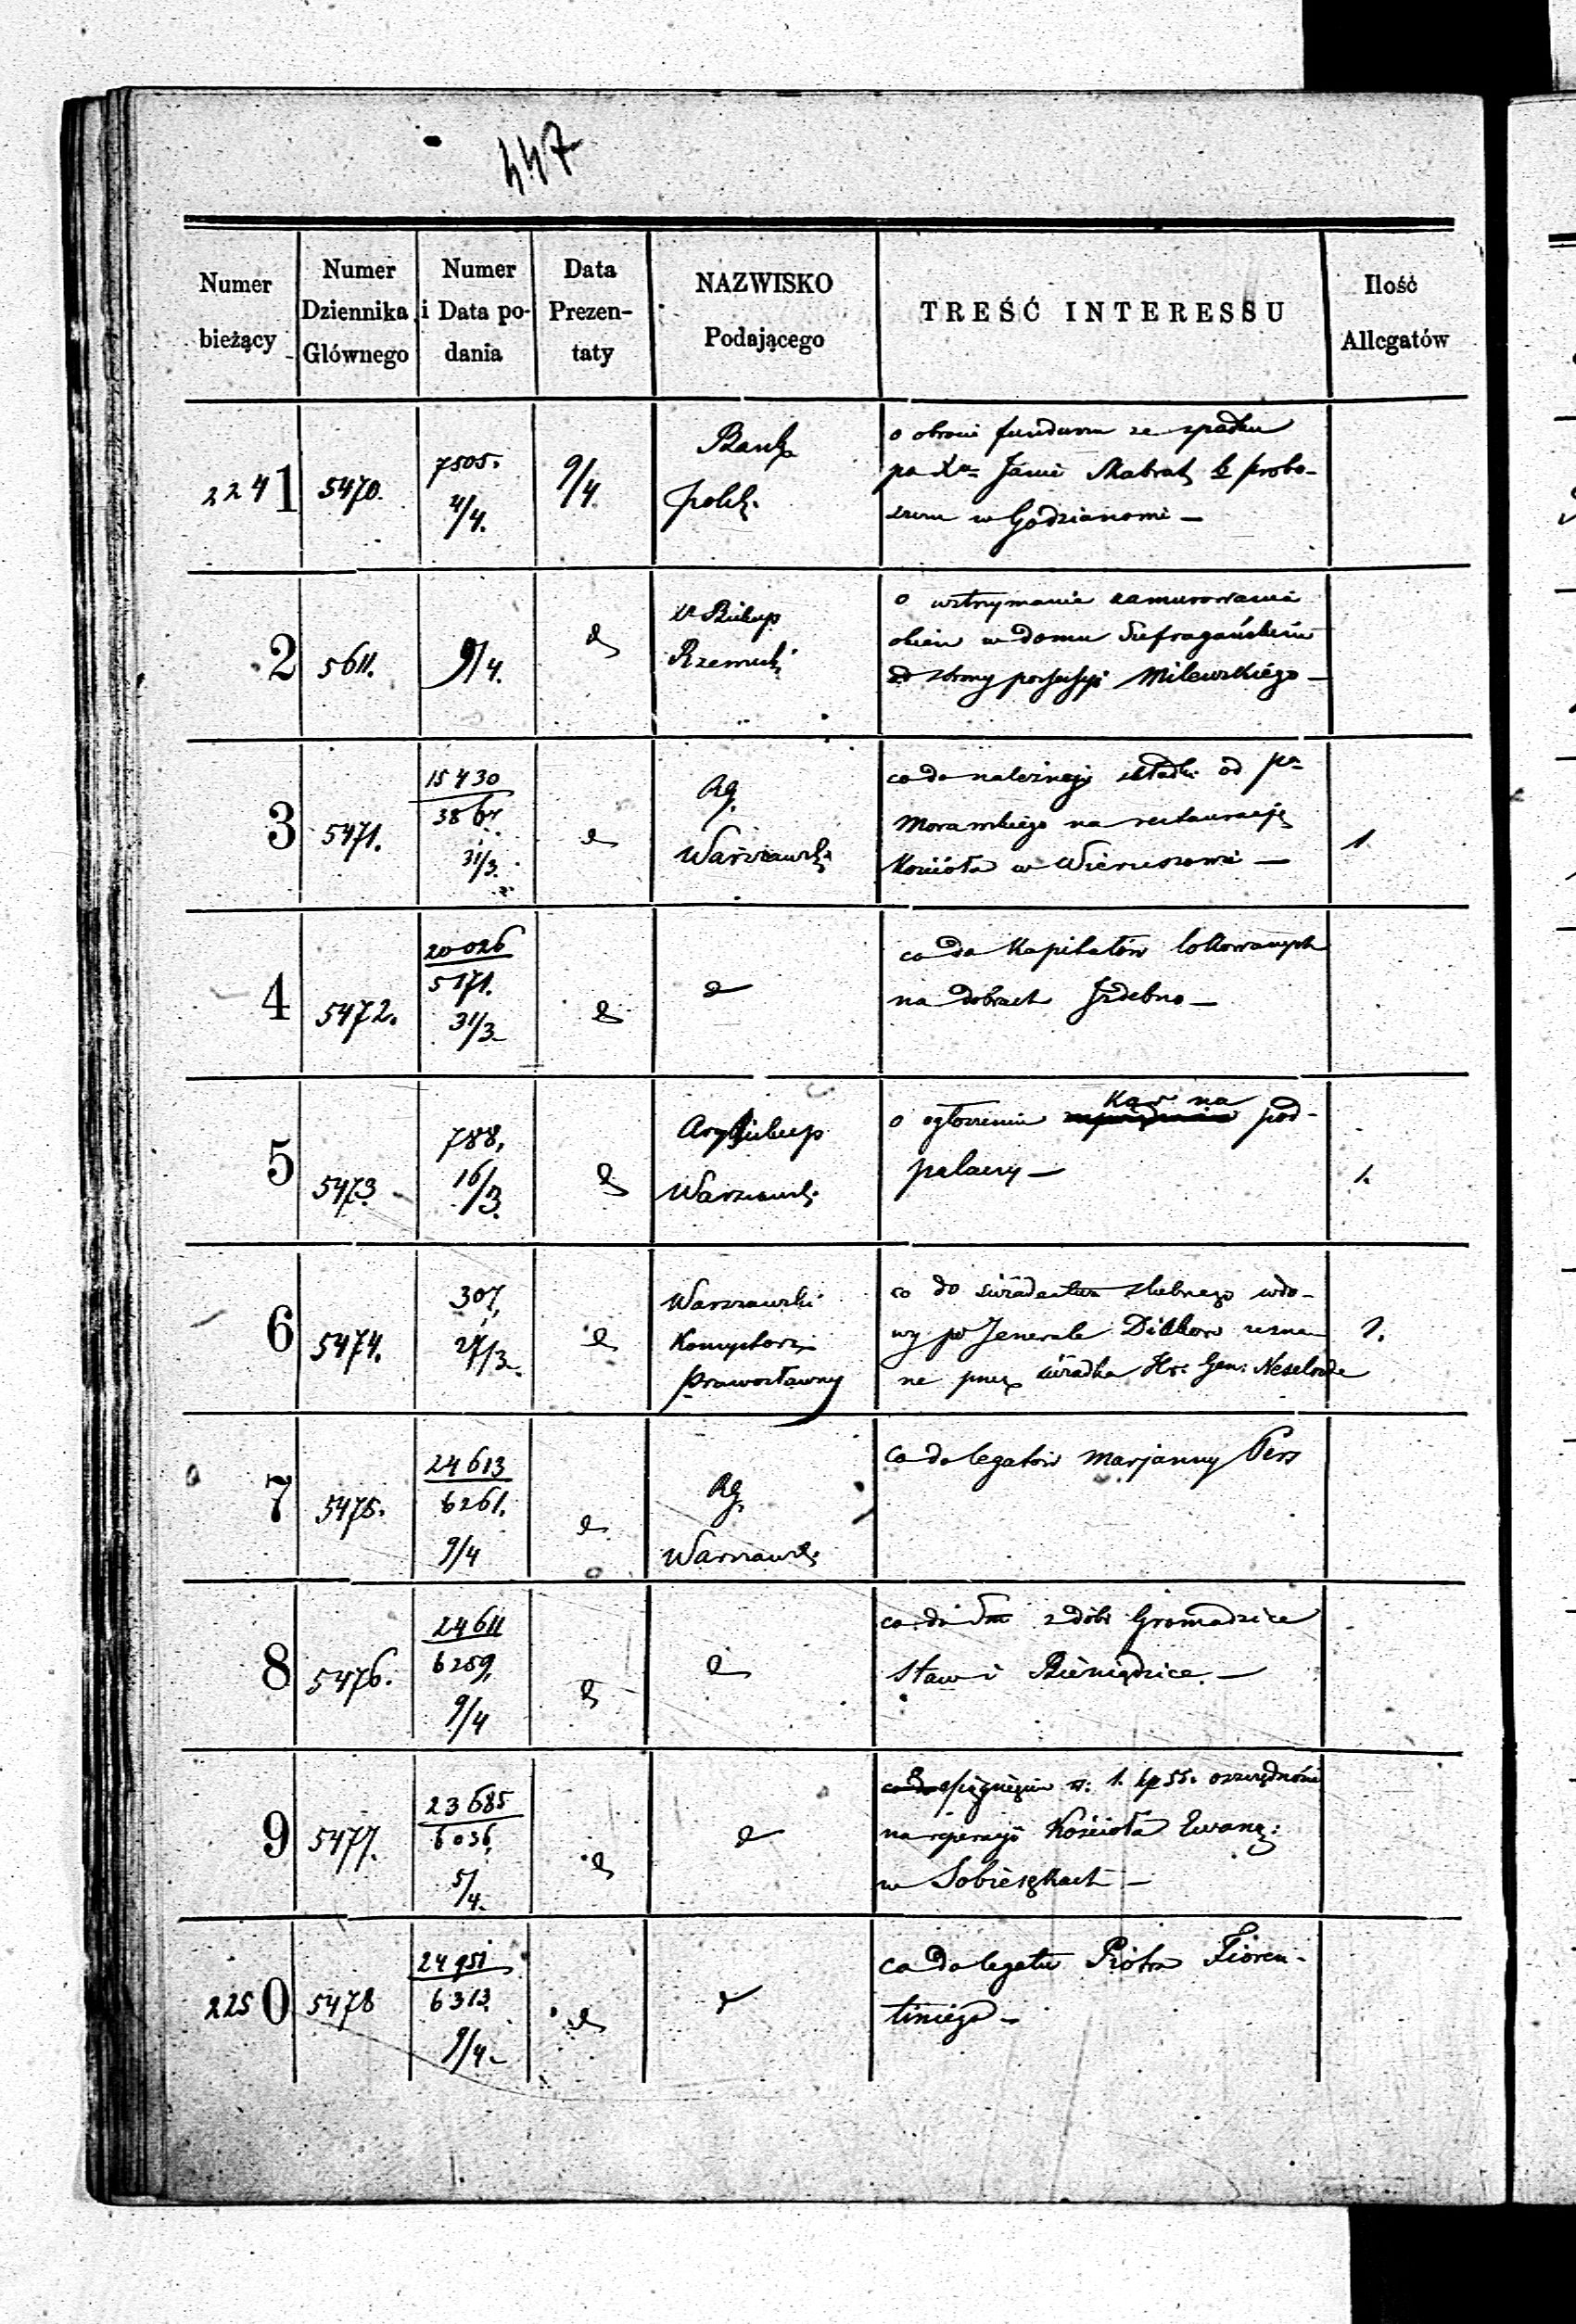 447
Numer bieżący
Numer Dziennika Głównego
Numer i Data podania
Data Prezentaty
NAZWISKO Podającego
TREŚĆ INTERESSU
Ilość Allegatów
2241 5470. 7505. 4/4. 9/4. Bank polsk.
o obronie funduszu ze spadku
po Xu Janie Skabrak b. probo-
szczu w Godzianowie —
2 5611. 9/4. d X Biskup Rzewuski
o wstrzymanie zamurowania
okien w domu Sufragańskim
od strony possessyi Milewskiego —
3 5471. 15430 3867. 31/3. d Rg. Warszawsk.
co do należnéj składki od pa
Morawskiego na restauracyę
Kościoła w Wieruszowie — 1
4 5472. 20026 5171. 31/3. d d
co do Kapitałów lokowanych
na dobrach Jzdebno —
5 5473 788, 16/3. d Arcybiskup Warszawsk.
o ogłoszeniu Kar na pod-
palaczy — 1.
6 5474. 307, 27/3. d Warszawski Konsystorz prawosławny
co do świadectwa ślubnego wdo-
wy po Jenerale Diakow zezna-
ne przez świadka Hr. Gen: Neselrode 1.
7 5475. 24613 6261. 9/4 d Rg. Warszawsk.
co do legatów Marjanny Pers
8 5476. 24611 6259, 9/4 d d
co do Sm z dóbr Gromadzice
Staw i Bieniądzice. —
9 5477. 23685 6036, 5/4. d d
o ściągnięciu rs: 1. kp 55. oszczędności
na reperacyi Kościoła Ewang:
w Sobieskach —
2250 5478 24951 6313. 9/4. d d
co do legatu Piotra Fioren-
tiniego —